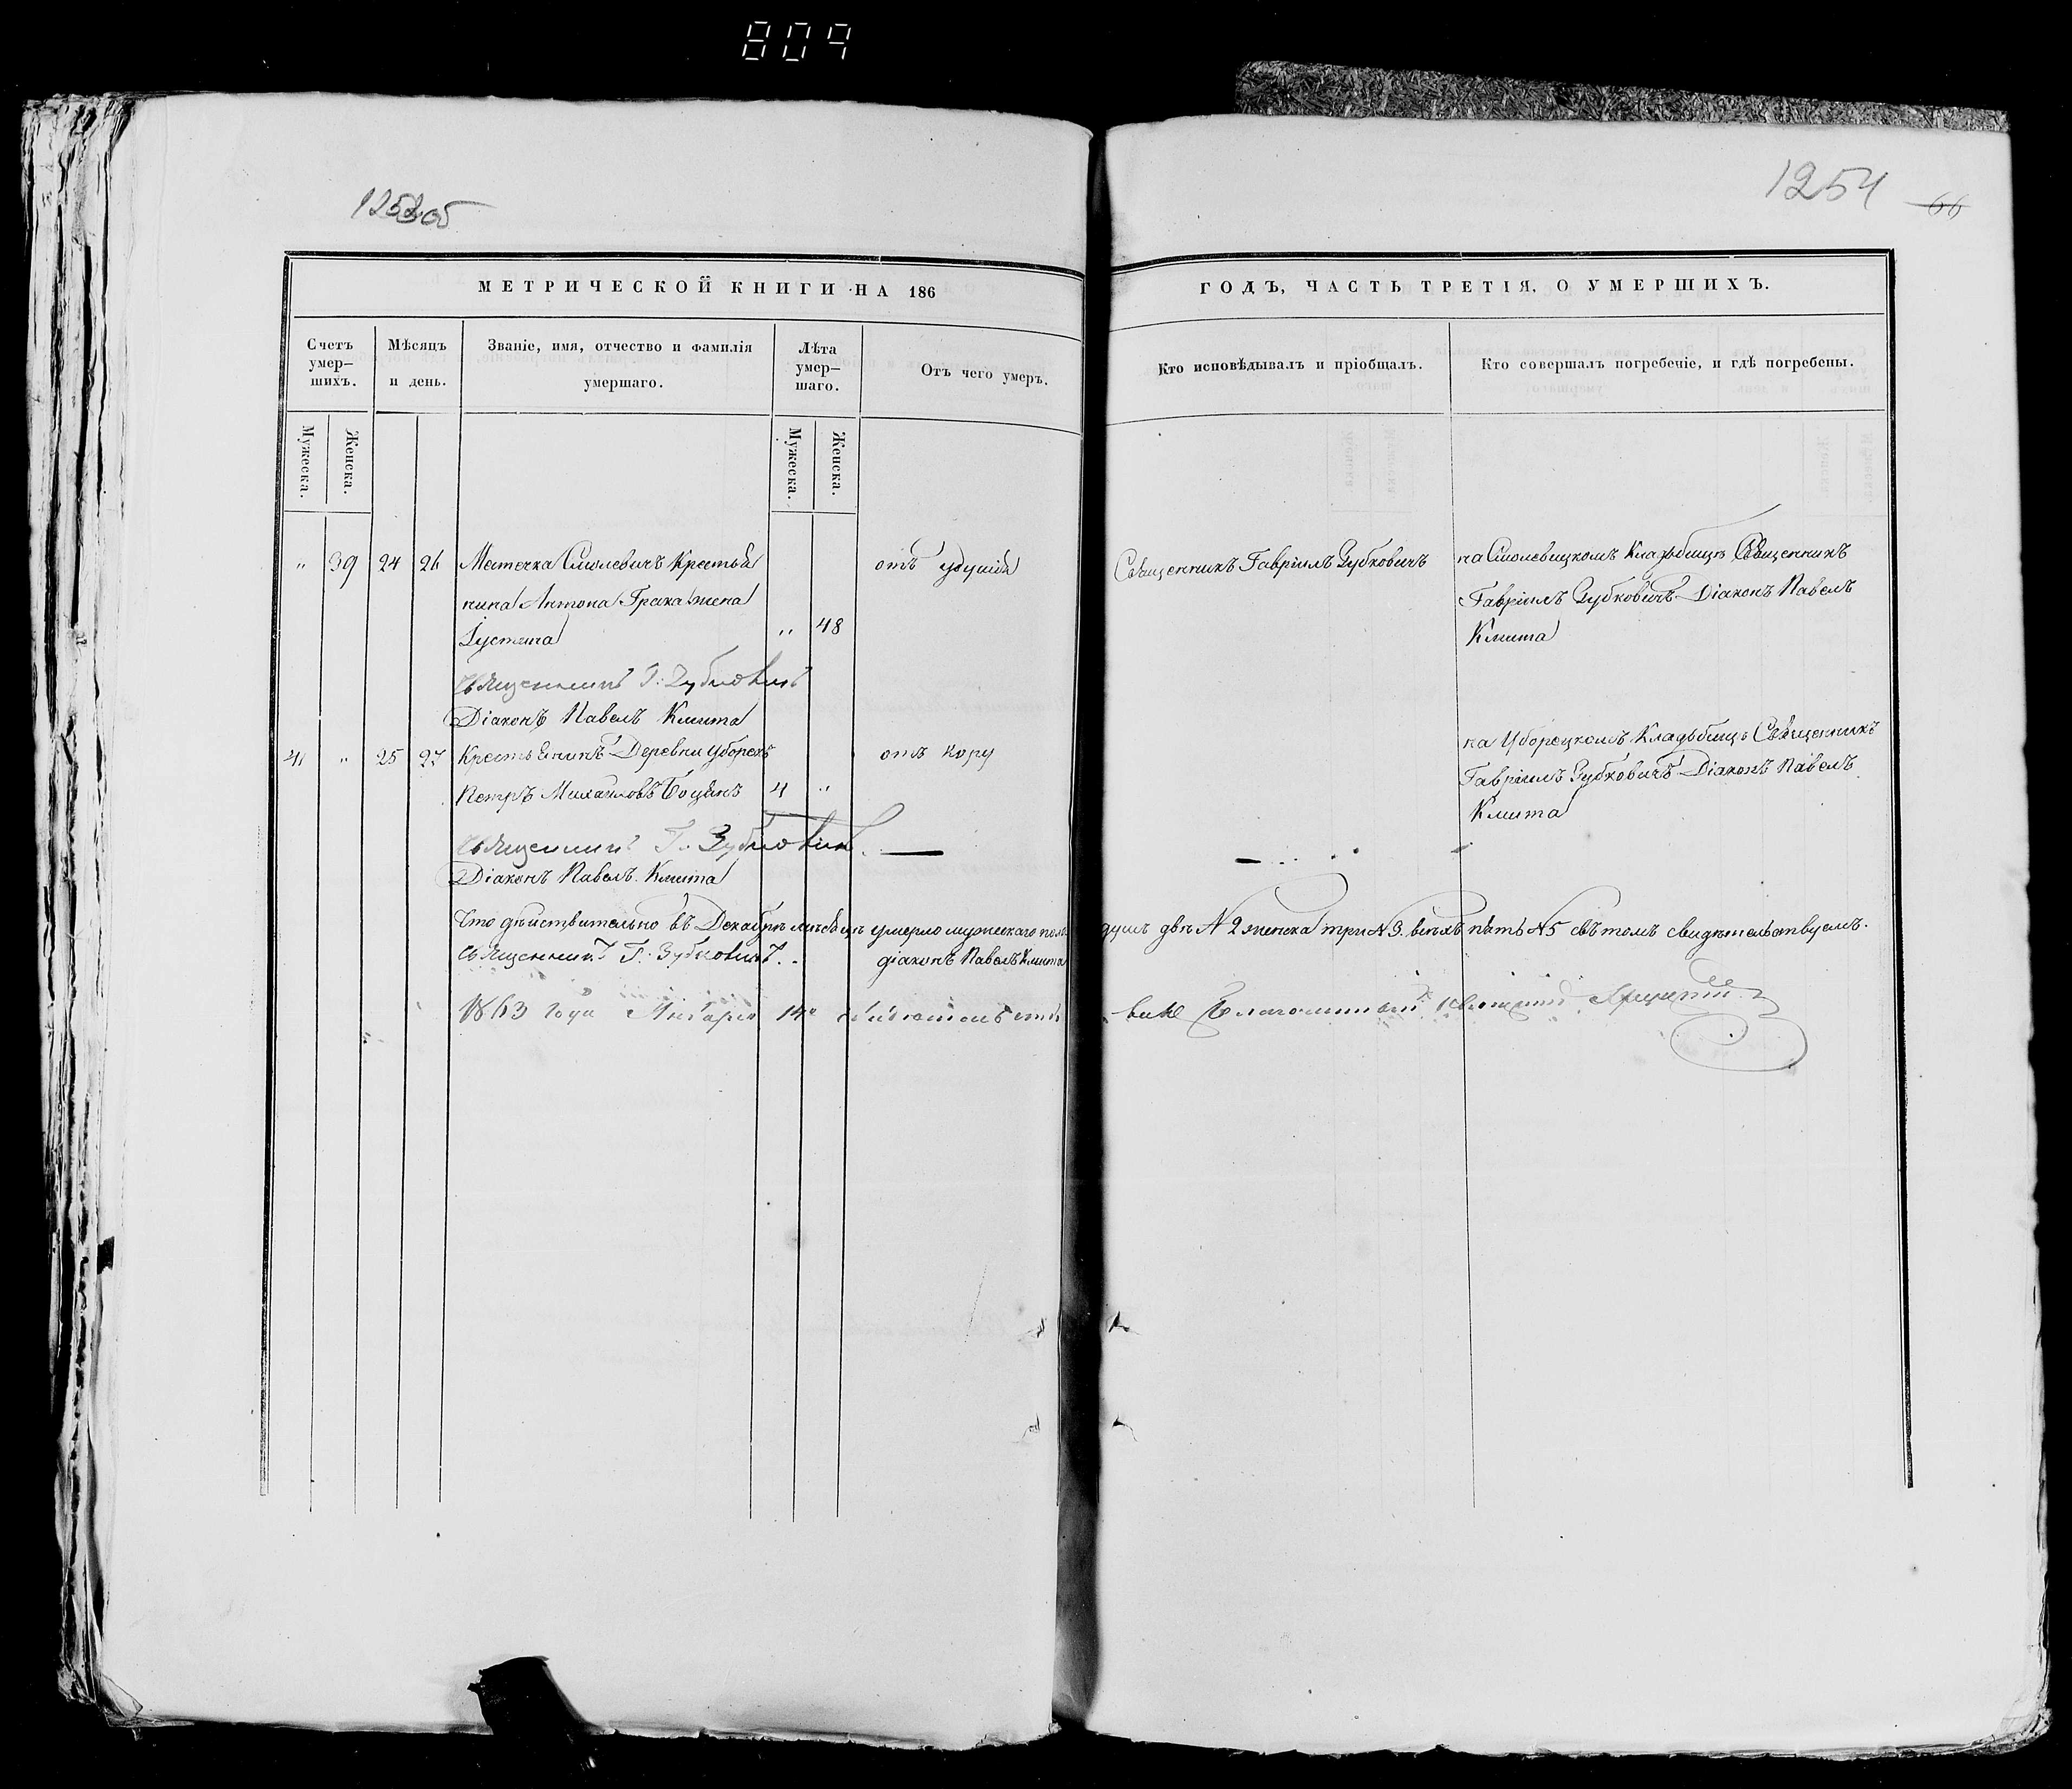 809
1254
66
МЕТРИЧЕСКОЙ КНИГИ НА 186
ГОДЪ, ЧАСТЬ ТРЕТІЯ, О УМЕРШИХЪ.
Счетъ умер—шихъ.
Мѣсяцъ и день.
Званіе, имя, отчество и фамилія умершаго.
Лѣта умер—шаго.
Отъ чего умеръ.
Кто исповѣдывалъ и пріобщалъ.
Кто совершалъ погребеніе, и гдѣ погребены.
Мужеска.
Женска.
Мужеска.
Женска.
" 39 24 26 Местечка Смолевичъ Крестья
нина Антона Грака жена
Іустина " 48
отъ удушья
Священникъ Гавріилъ Зубковичъ
на Смолевицкомъ Кладьбищѣ Священникъ
Гавріилъ Зубковичъ Діаконъ Павелъ
Кмита
Священникъ Г. Зубковичъ
Діаконъ Павелъ Кмита
41 " 25 27 Крестьянинъ Деревни Уборекъ
Петръ Михайловъ Боцянъ 4 "
отъ кору
на Уборецкомъ Кладьбищѣ Священникъ
Гавріилъ Зубковичъ Діаконъ Павелъ
Кмита
Священникъ Г. Зубковичъ.
Діаконъ Павелъ Кмита
Что дѣйствительно въ Декабрѣ мѣсяцѣ умерло мужескаго пола душъ двѣ N 2 женска три N 3. всѣхъ пять N 5 въ томъ свидѣтельствуемъ.
Священникъ Г. Зубковичъ.
діаконъ Павелъ Кмита
1863 года Января Благочинный